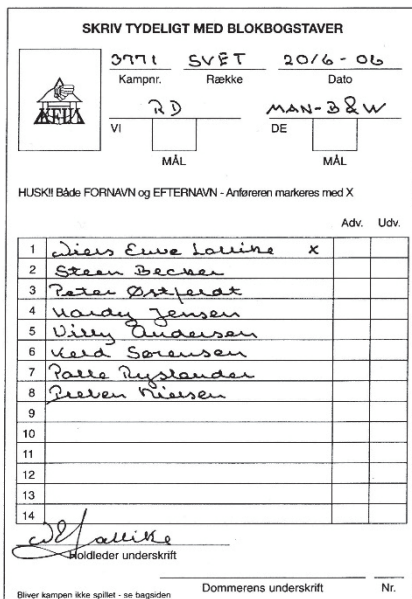 SKRIV TYDELIGT MED BLOKBOGSTAVER
3771 SVET 20/6-06
Kampnr. Række Dato
RD MAN-B&W
VI DE
MÅL MÅL
HUSK!! Både FORNAVN og EFTERNAVN - Anføreren markeres med X
Adv. Udv.
1 Niels Enve Lallike x
2 Steen Becker
3 Peter Østfeldt
4 Hardy Jensen
5 Villy Andersen
6 Keld Sørensen
7 Palle Ryslander
8 Preben Nielsen
9
10
11
12
13
14
Lallike
Holdleder underskrift
Dommerens underskrift Nr.
Bliver kampen ikke spillet - se bagsiden